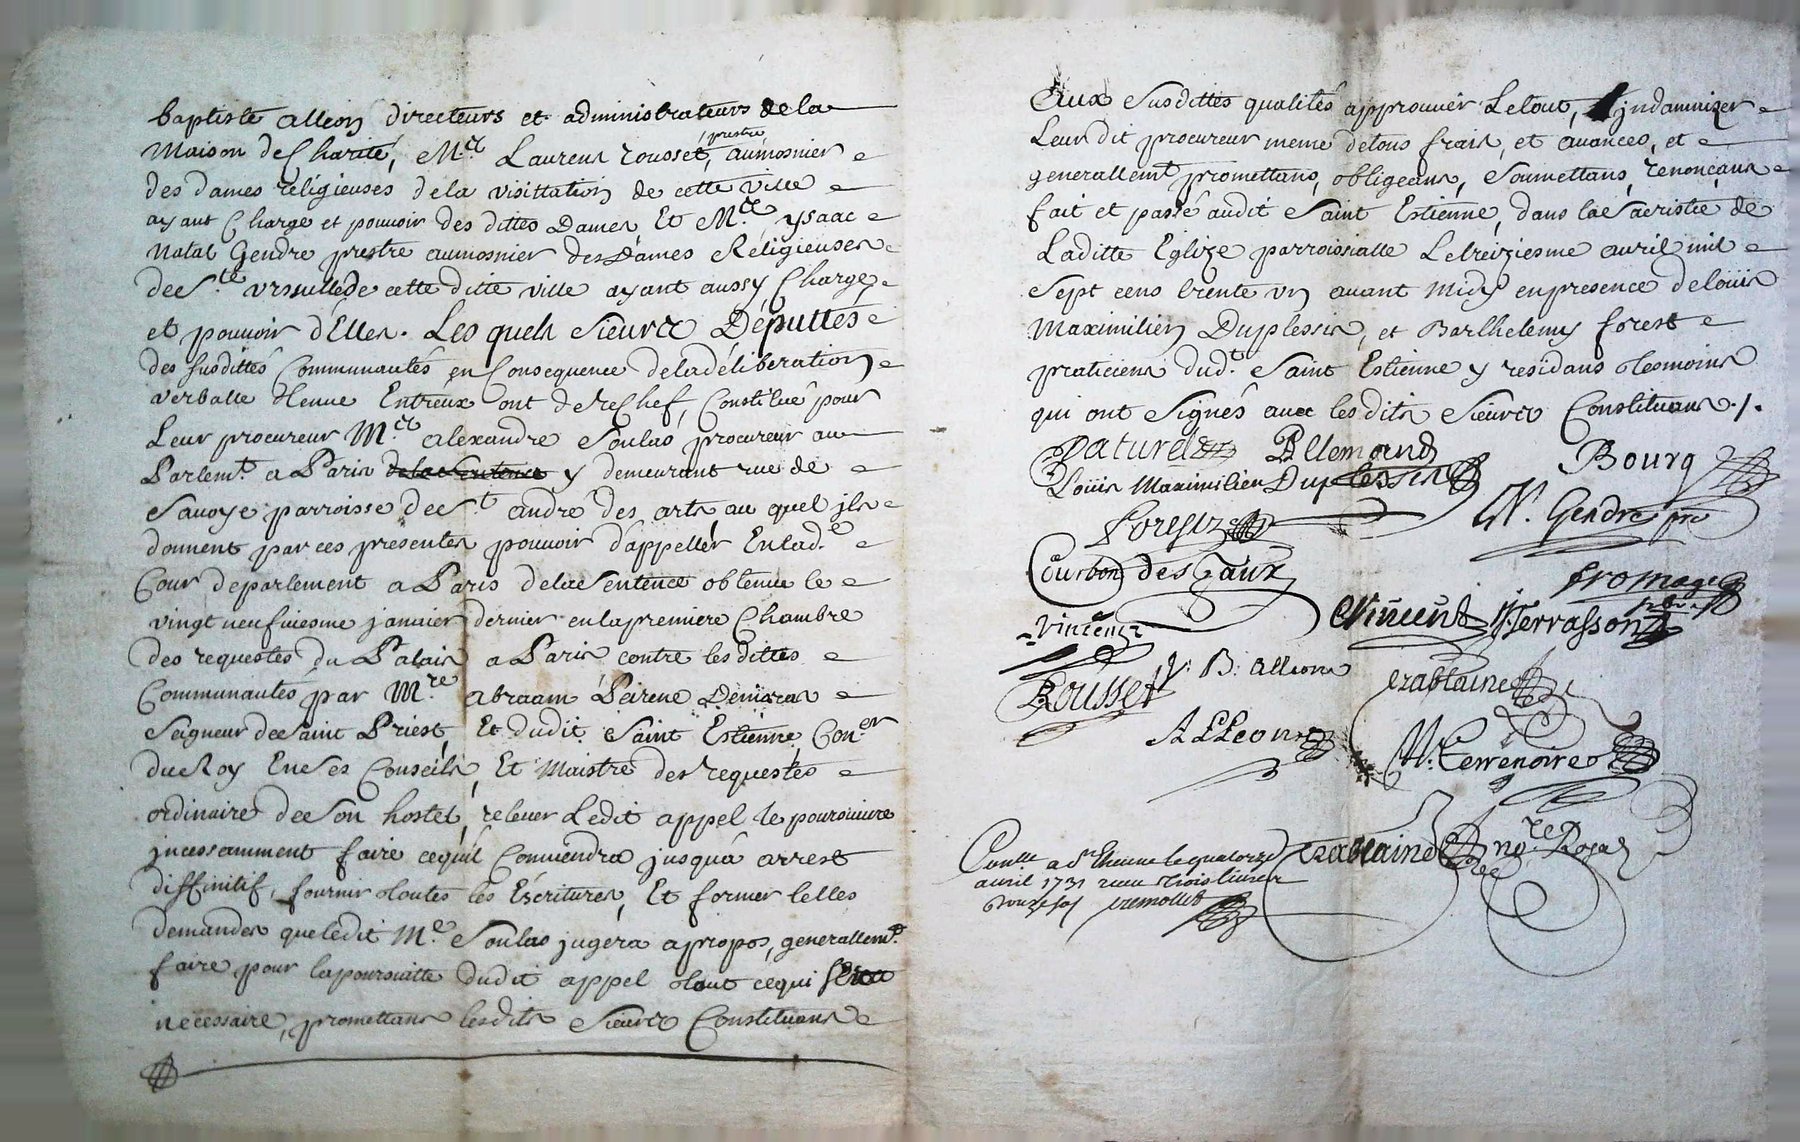 baptiste alleon directeurs et administrateurs de la
Maison de Charité, Mre Laurens rousset, prestre aumosnier
des dames réligieuses de la visittation de cette ville
ayant Charge et pouvoir des dittes Dames, Et Mre ysaac
Natal Gendre prestre aumosnier des Dames Réligieuses
de Ste urssulle de cette ditte ville ayant aussy Charge,
et pouvoir d'Elles. Lesquels Sieurs Députtés
des susdittes Communautés en Consequence de la déliberation
verballe tenue Entreux ont de reChef, Constitué pour
Leur procureur Mre alexandre Soulas procureur au
Parlemt. a Paris de la Sentence y demeurant rue de
Savoye parroisse de St andré des arts au quel ils
donnent par ces presentes pouvoir d'appeller En lade.
Cour de parlement a Paris de la Sentence obtenue le
vingt neufviesme janvier dernier en la premiere Chambre
des requestes du Palais a Paris contre les dittes
Communautés par Mre abraam Peirenc Demoras
Seigneur de Saint Priest, Et dudit Saint Estienne, Coner
du Roy En ses Conseils, Et Maistre des requestes
ordinaire de Son hostel, relever Ledit appel le poursuivre
jncessamment faire cequ'il Conviendra jusqu'a arrest
diffinitif, fournir toutes les Escritures, Et former telles
demandes que ledit Me Soulas jugera apropos, generallemt.
faire pour la poursuitte dudit appel tout cequi sera
necessaire, promettans lesdits Sieurs Constituans
aux Susdittes qualités approuver Le tout, jndamnizer
Leurdit procureur meme de tous frais, et avances, et
generallemt promettans, obligeans, Soumettans, renonçans
fait et passé audit Saint Estienne, dans la Sacristie de
Laditte Eglize parroissialle Le treiziesme avril mil
Sept cens trente un avant Midy en presence de loüis
Maximilien Duplessis, et Barthelemy forest
praticiens dud. Saint Estienne y residans tesmoins
qui ont Signés avec les dits Sieurs Constituans./.
Naturel Allemand Bourg
Loüis Maximilien Duplessis
forest N. Gendre pre
Courbon des Gaux
fromage
Vincent Vincent Terrasson
Rousset J. B. alleon crablaine
ALLeon
M. Terrenoire
Conlle a St Etienne le quatorze
avril 1731 receu trois livres
douze sols cremollet